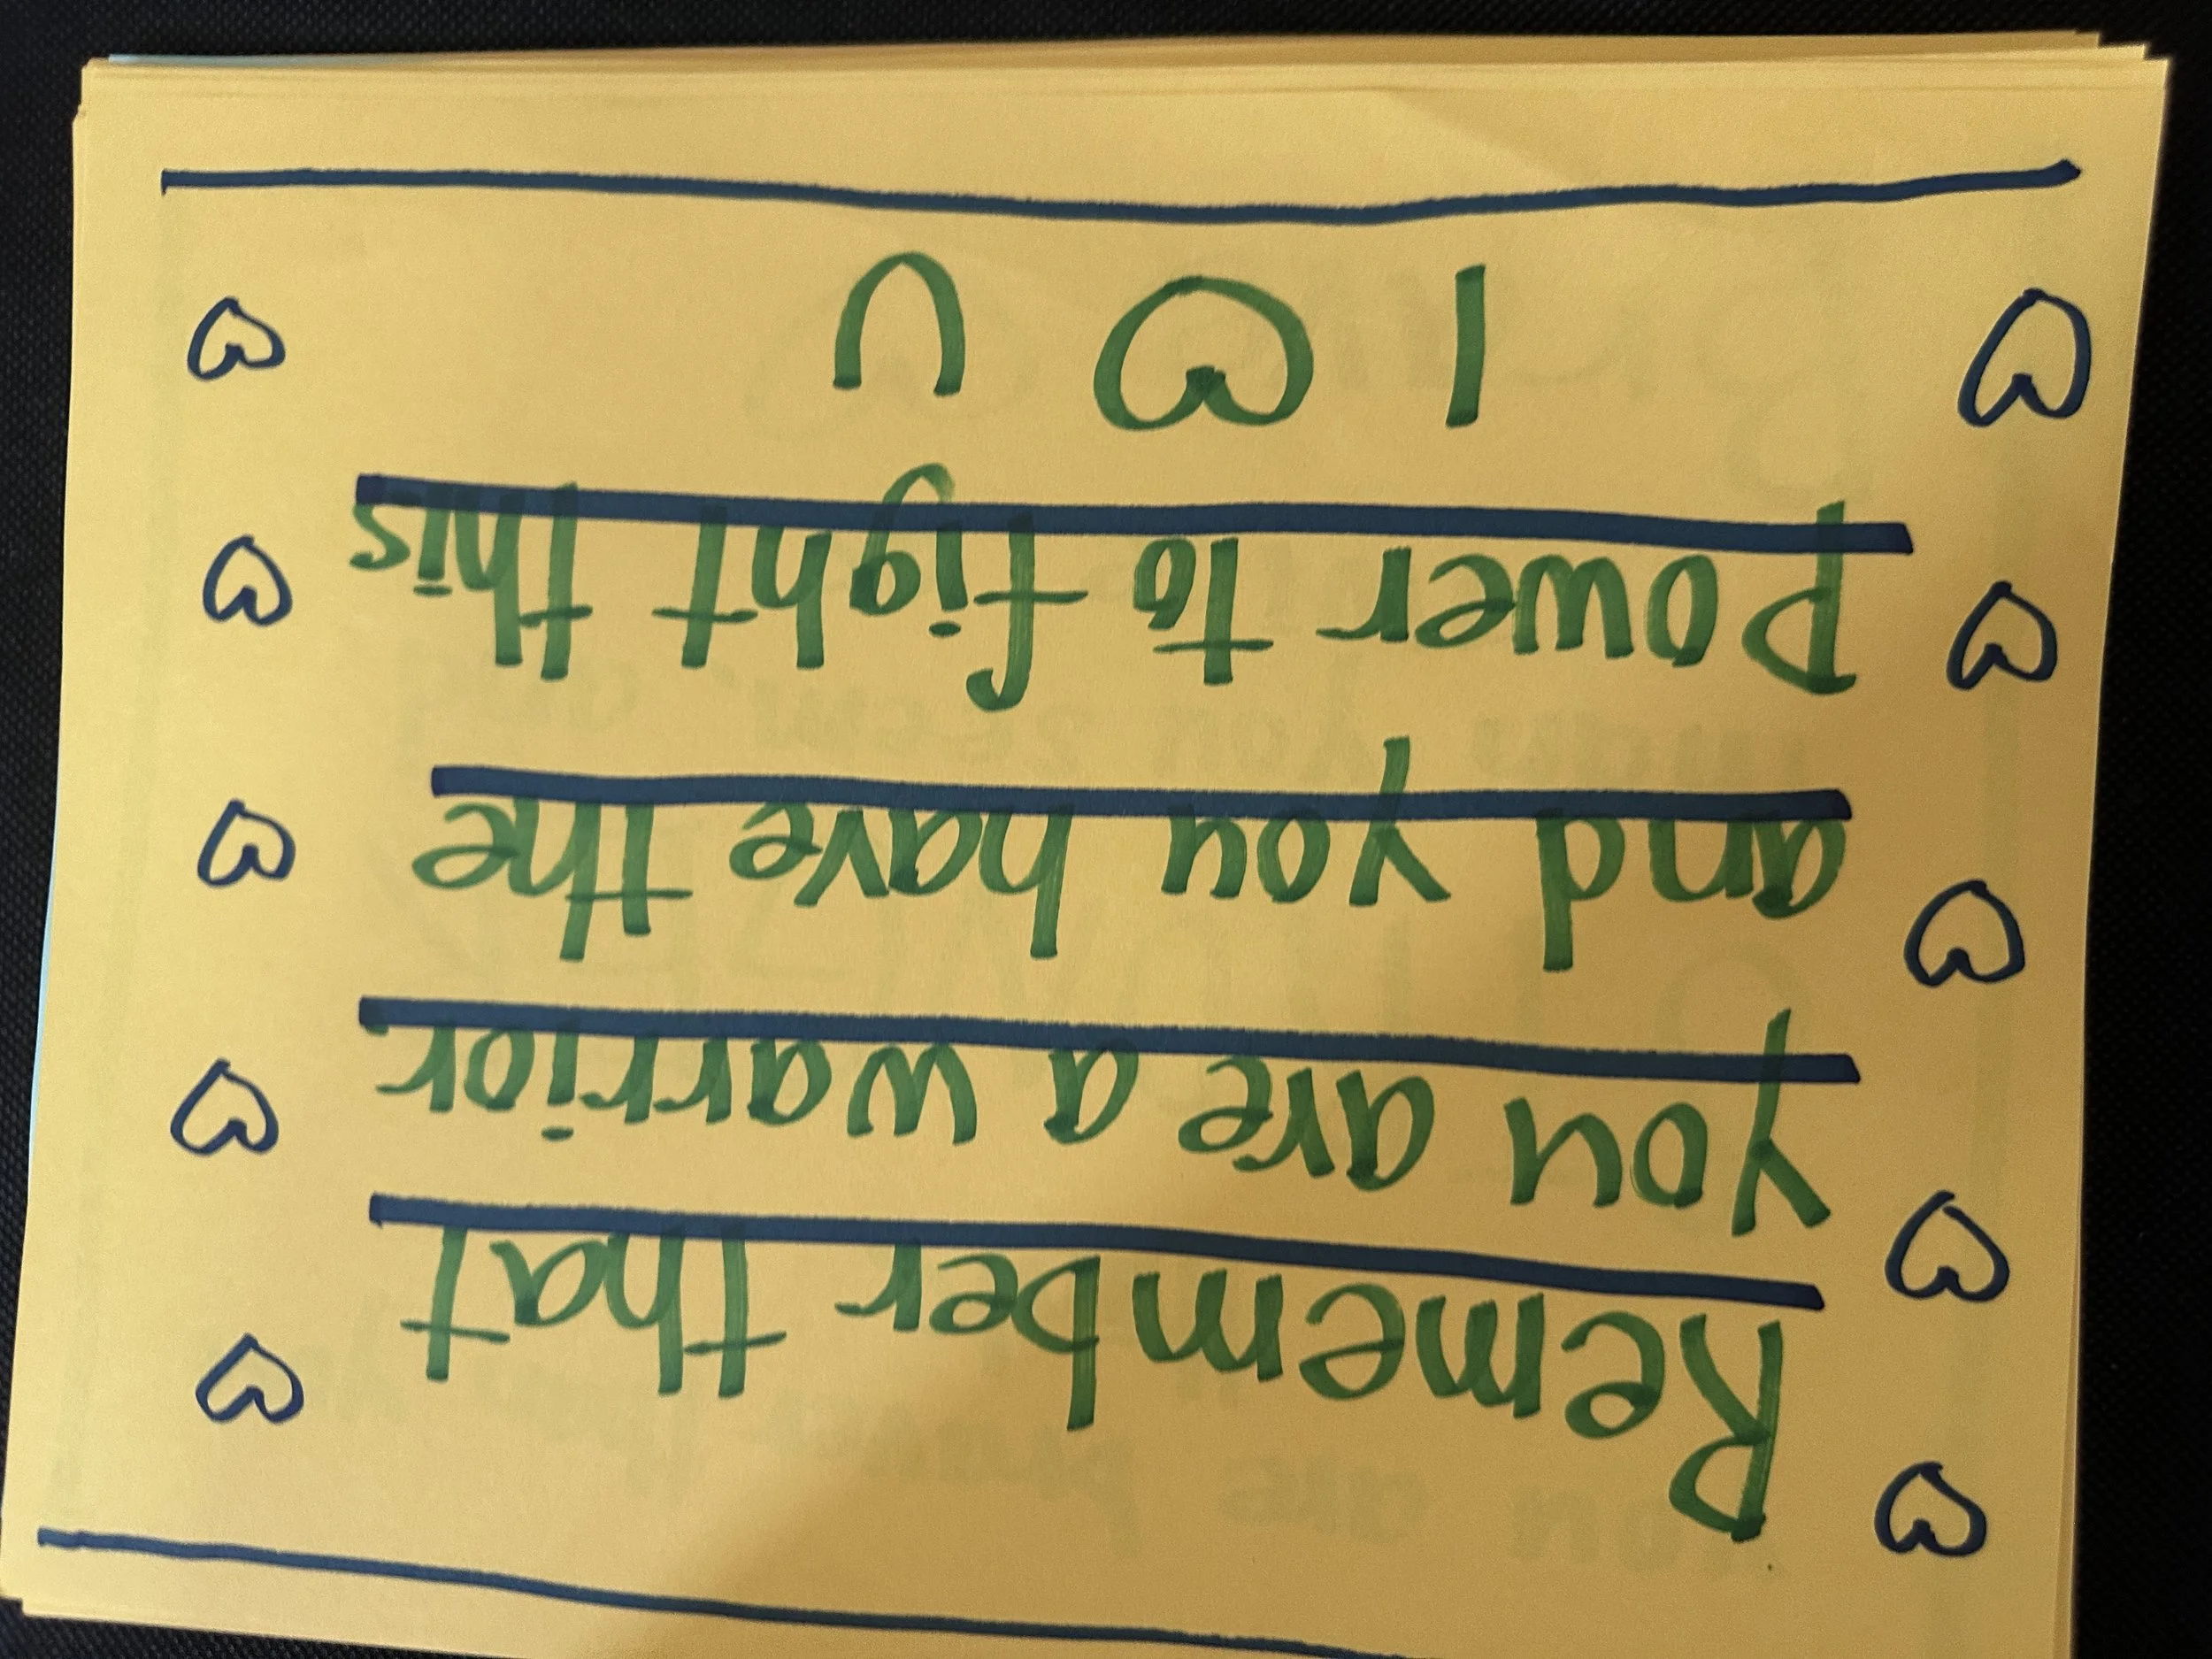 Remember that
you are a warrior
and you have the
power to fight this
I ♡ U